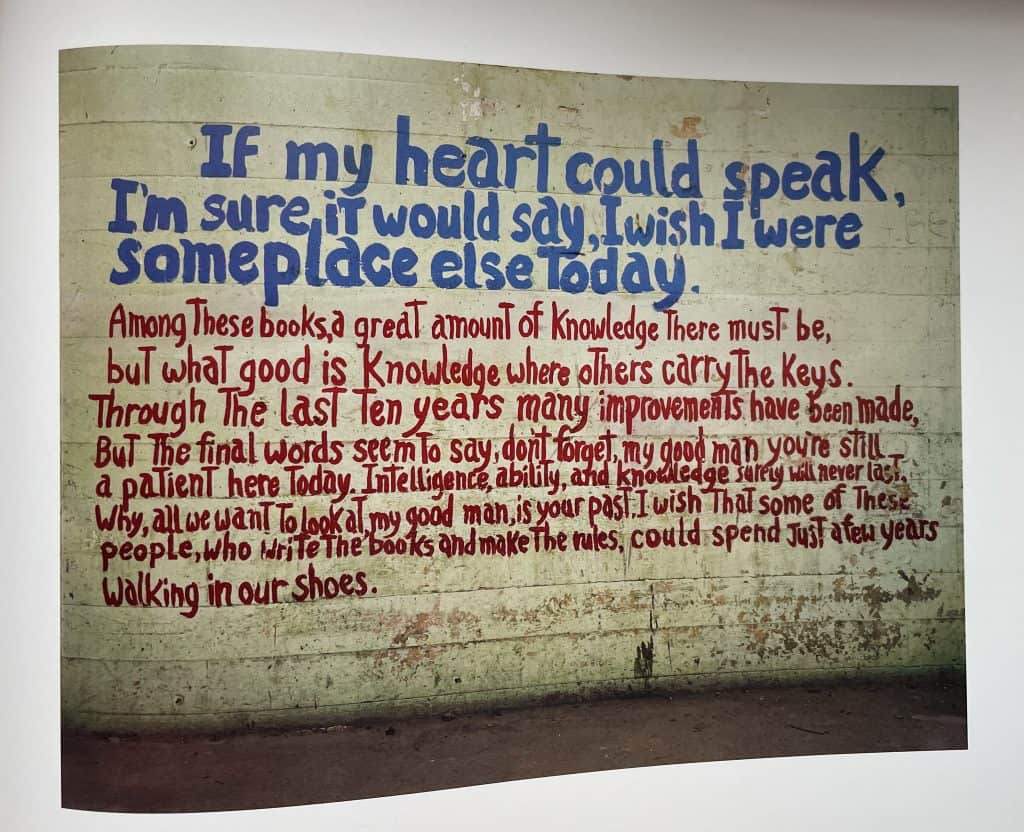 If my heart could speak,
I'm sure, it would say, I wish I were
someplace else Today.
Among These books, a great amount of Knowledge There must be,
but what good is Knowledge where others carry The Keys.
Through The last Ten years many improvements have been made,
But The final words seem To say, don't forget, my good man you're still
a patient here Today. Intelligence, ability, and knowledge surely will never last.
Why, all we want To look at, my good man, is your past. I wish That some of These
people, who write The books and make The rules, could spend Just a few years
walking in our shoes.